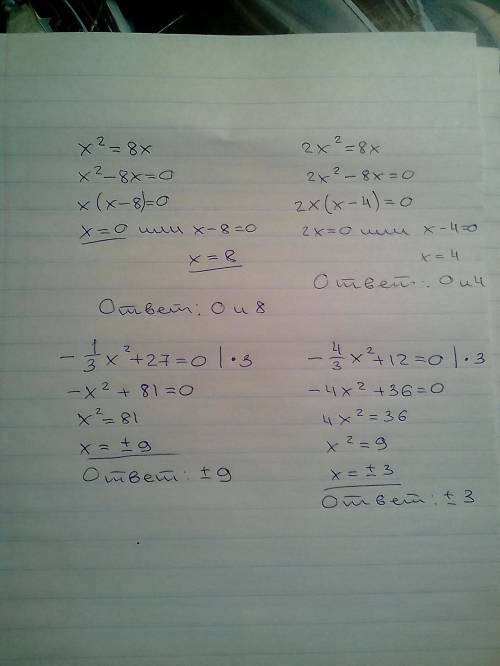 x² = 8x
x² - 8x = 0
x(x - 8) = 0
x = 0 или x - 8 = 0
x = 8
Ответ: 0 и 8
2x² = 8x
2x² - 8x = 0
2x(x - 4) = 0
2x = 0 или x - 4 = 0
x = 4
Ответ: 0 и 4
- 1/3 x² + 27 = 0 | · 3
- x² + 81 = 0
x² = 81
x = ± 9
Ответ: ± 9
- 4/3 x² + 12 = 0 | · 3
- 4x² + 36 = 0
4x² = 36
x² = 9
x = ± 3
Ответ: ± 3